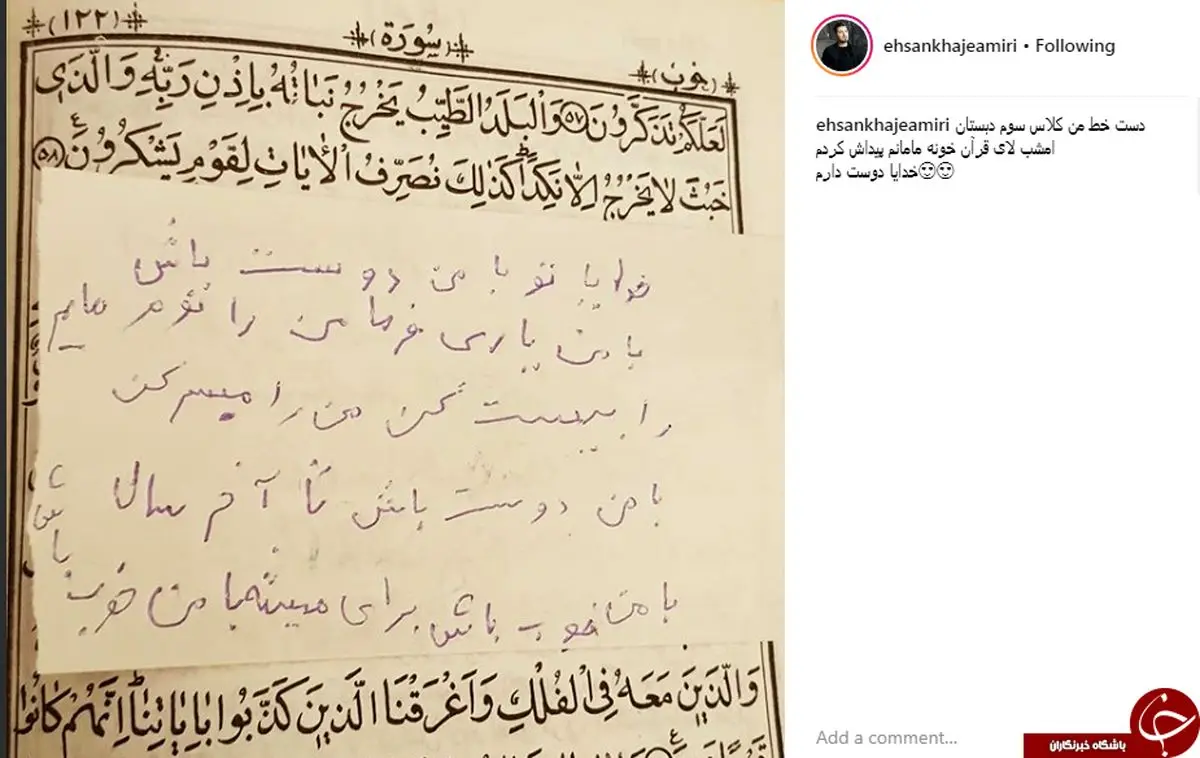 (١٢٢)
(سُورَة)
(خوب)
لَعَلَّكُمْ تَذَكَّرُونَ ٥٧ وَالْبَلَدُ الطَّيِّبُ يَخْرُجُ نَبَاتُهُ بِاِذْنِ رَبِّهِ وَالَّذى
خَبُثَ لا يَخْرُجُ اِلاّٰ نَكِداً كَذٰلِكَ نُصَرِّفُ الْاٰيَاتِ لِقَوْمٍ يَشْكُرُونَ ٥٨
خدایا تو با من دوست باش
با من یاری فرما من را نوم مایم
را بیست کن من را میسر کن
با من دوست باش تا آخر سال
با من خوب باش برای همیشه با من خوب باش
وَالَّذينَ مَعَهُ فِى الْفُلْكِ وَاَغْرَقْنَا الَّذينَ كَذَّبُوا بِاٰيَاتِنَا اِنَّهُمْ كَانُوا
ehsankhajeamiri • Following
ehsankhajeamiri دست خط من کلاس سوم دبستان
امشب لای قرآن خونه مامانم پیداش کردم
خدایا دوست دارم🙂🙂
Add a comment...
باشگاه خبرنگاران